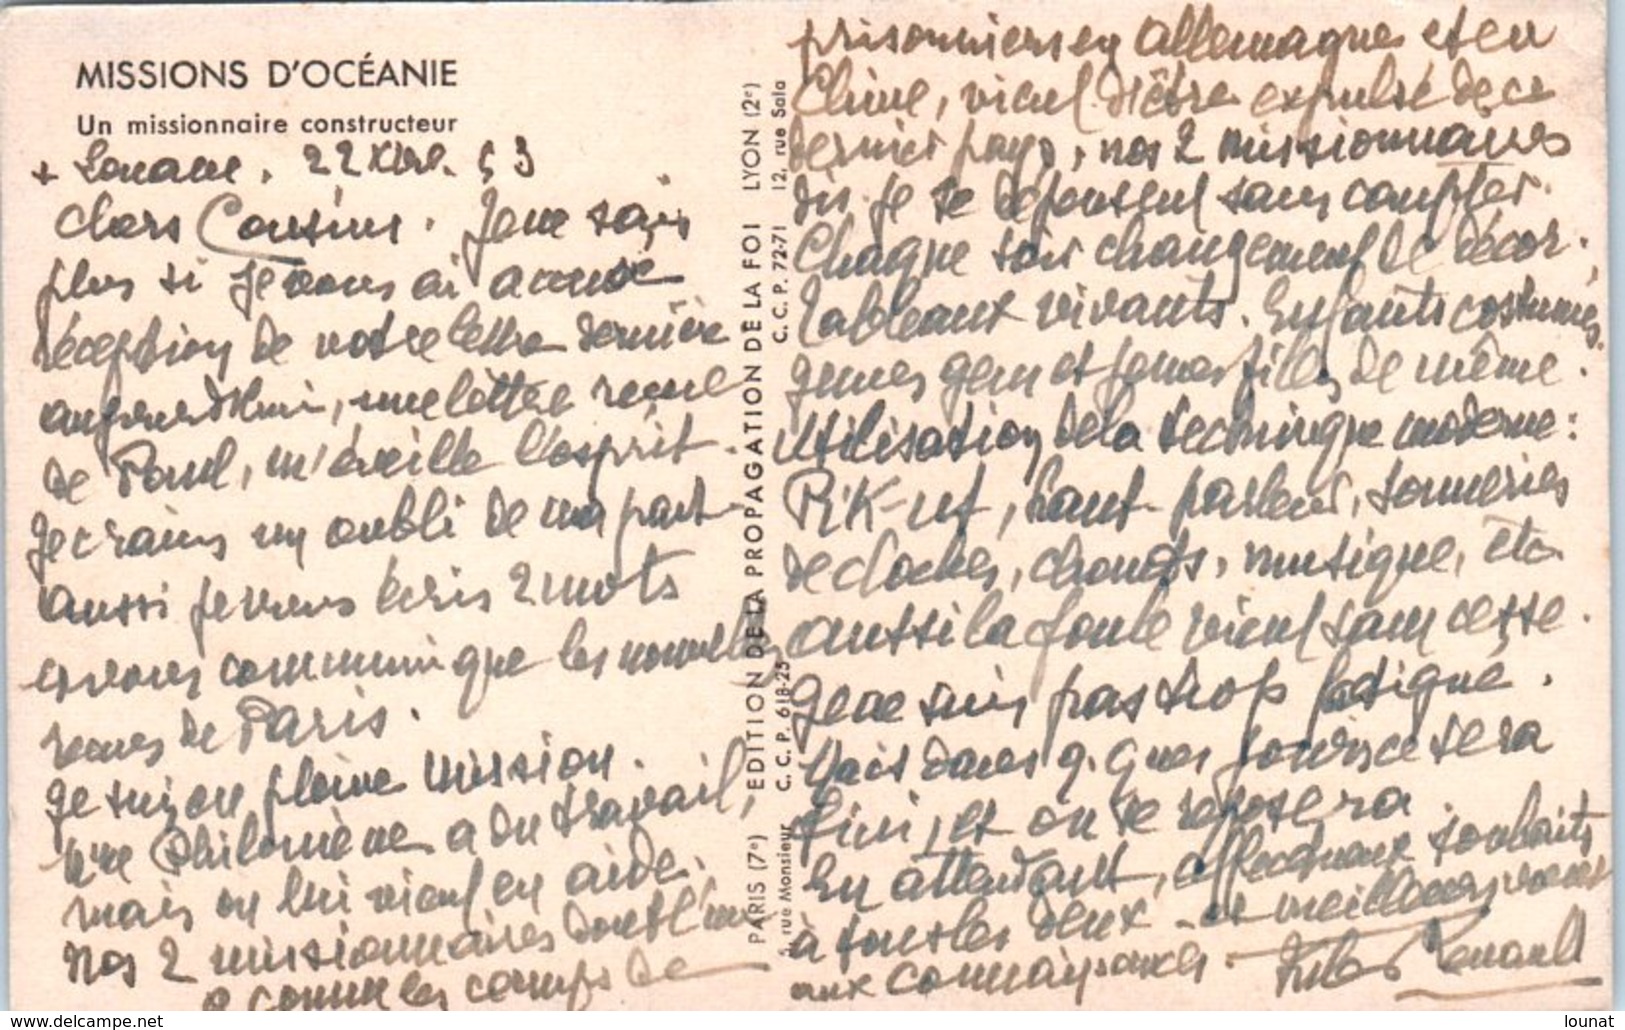 MISSIONS D'OCÉANIE
Un missionnaire constructeur
+ 22 Xbre. 53
Chers Cousins. Je ne sais
plus si je vous ai accusé
réception de votre lettre dernière
aujourd'hui, une lettre reçue
de Paul, m'éveille l'esprit.
Je crains un oubli de ma part.
aussi je vous écris 2 mots
et vous communique les nouvelles
reçues de Paris.
Je suis en pleine mission.
Mme Philomène a du travail,
mais on lui vient en aide.
nos 2 missionnaires dont l'un
a connu les camps de
PARIS (7e) EDITION DE LA PROPAGATION DE LA FOI LYON (2e)
rue Monsieur C. C. P. 618-25 C. C. P. 72-71 12, rue Sala
prisonniers en Allemagne et en
Chine, vient d'être expulsé de ce
dernier pays, nos 2 missionnaires
dis-je se dépensent sans compter.
Chaque soir changement de décor.
Tableaux vivants. Enfants costumés.
jeunes gens et jeunes filles de même.
Utilisation de la technique moderne:
Pik-up, haut-parleur, sonneries
de cloches, chants, musique, etc
aussi la foule vient sans cesse.
Je ne suis pas trop fatigué.
Mais dans q.ques jours ce sera
fini, et on se reposera
En attendant, affectueux souhaits
à tous les deux et meilleurs voeux
aux connaissances. Renault
lounat
www.delcampe.net